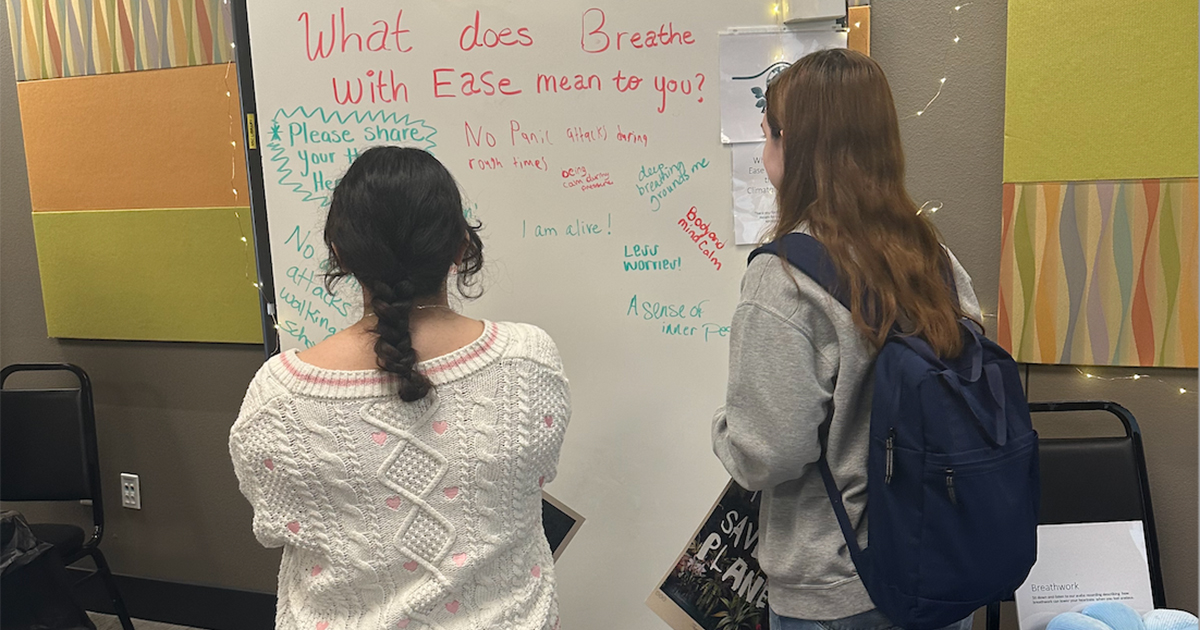 What does Breathe
with Ease mean to you?
* Please share
your
He
No Panic attacks during
rough times
being
calm during
pressure
deep
breathing
grounds me
I am alive!
Body and
mind Calm
Less
worries!
A sense of
inner pe
No
attacks
walking
sch
SAV
PLANE
Breathwork